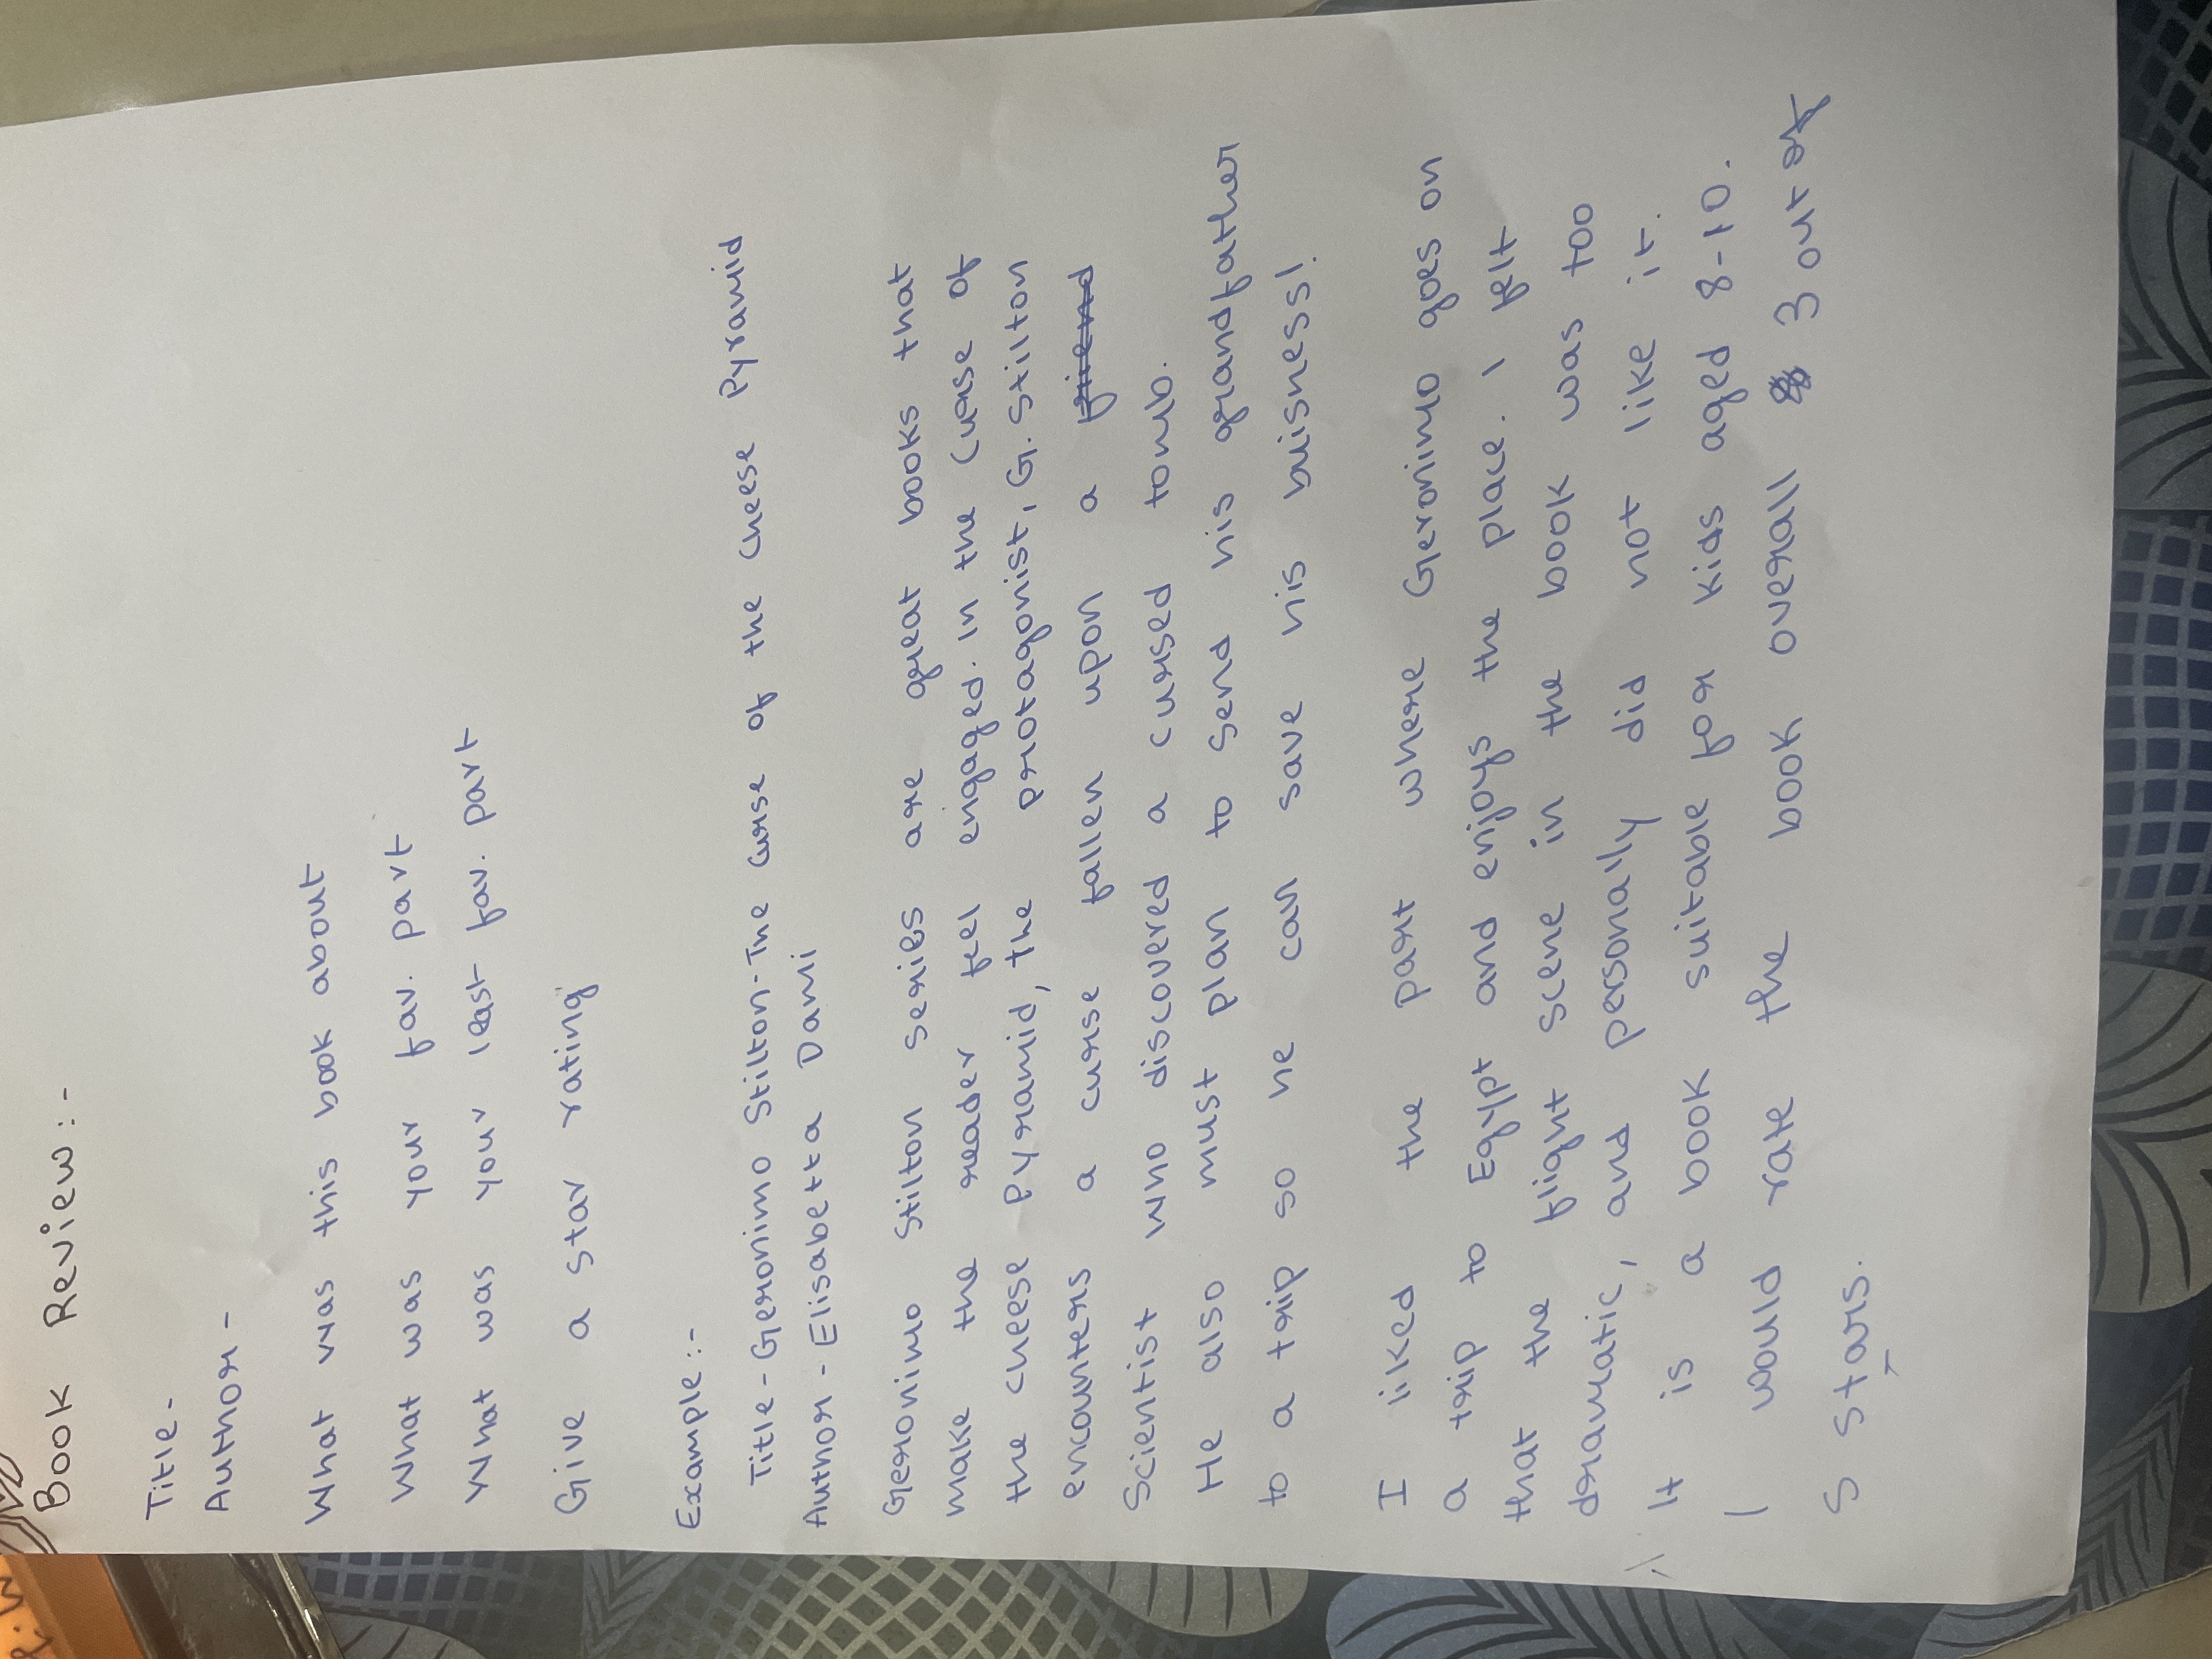 Book Review:-
Title-
Author-
What was this book about
What was your fav. part
What was your least fav. part
Give a star rating
Example:-
Title-Geronimo Stilton-The Curse of the Cheese Pyramid
Author-Elisabetta Dami
Geronimo Stilton series are great books that
make the reader feel engaged. In the Curse of
the cheese pyramid, the protagonist, G. Stilton
encounters a curse fallen upon a friend
Scientist who discovered a cursed tomb.
He also must plan to send his grandfather
to a trip so he can save his buisness!
I liked the part where Geronimo goes on
a trip to Egypt and enjoys the place. I felt
that the flight scene in the book was too
dramatic, and personally did not like it.
It is a book suitable for kids aged 8-10.
I would rate the book overall 3 out of
5 stars.